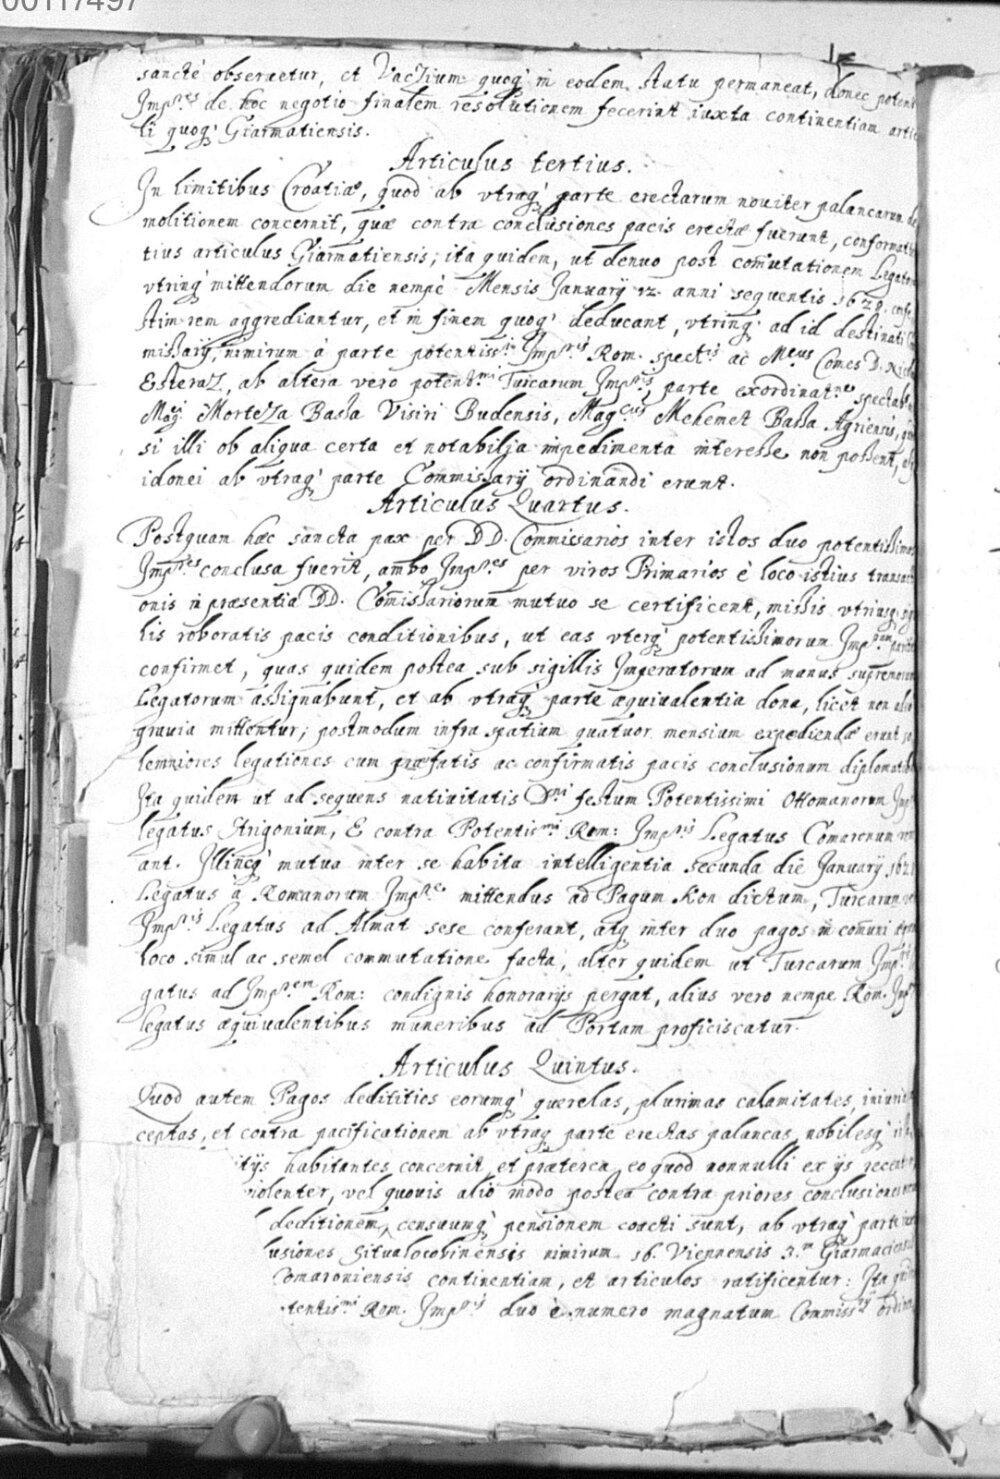 00117497
sancte obseruetur, et Vaczium quoq' in eodem statu permaneat, donec potent
Imp.res de hoc negotio finalem resolutionem fecerint iuxta continentiam artic
li quoq' Giarmatiensis.
Articulus tertius.
In limitibus Croatiæ, quod ab vtraq' parte erectarum nouiter palancarum de
molitionem concernit, quæ contra conclusiones pacis erectæ fuerunt, conformat
tius articulus Giarmatiensis; ita quidem, ut denuo post comutationem Legator
vtrinq' mittendorum die nempè Mensis January 12. anni sequentis 1629. confe
stim rem aggrediantur, et in finem quoq' deducant, vtrinq' ad id destinati
missarij, nimirum à parte potentiss.mi Imp.ris Rom. spect.is ac M.cus Comes D. Nico
Esteraz, ab altera vero potent.mi Turcarum Imp.ris parte exordinat.nes spectab
Mag.ci Morteza Bassa Visiri Budensis, Mag.cus Mehemet Bassa Agriensis, q
si illi ob aliqua certa et notabilia impedimenta interesse non possent,
idonei ab vtraq' parte Commissarij ordinandi erunt.
Articulus Quartus.
Postquam hæc sancta pax per DD. Commissarios inter istos duo potentissimos
Imp.res conclusa fuerit, ambo Imp.res per viros Primarios è loco istius transacti
onis in præsentia DD. Comissariorum mutuo se certificent, missis vtriusq' sigi
lis roboratis pacis conditionibus, ut eas vterq' potentissimorum Imp.rum pariter
confirmet, quas quidem postea sub sigillis Imperatorum ad manus supremorum
Legatorum assignabunt, et ab vtraq' parte æquiualentia dona, licet non
grauia mittentur; postmodum infra spatium quatuor mensium expediendæ erunt so
lemniores legationes cum præfatis ac confirmatis pacis conclusionum diplomatib
Ita quidem ut ad sequens natiuitatis D.ni festum Potentissimi Ottomanorum Imp
legatus Strigonium, E contra Potentis.mi Rom: Imp.ris Legatus Comaronum veni
ant. Illincq' mutua inter se habita intelligentia secunda die January 162
Legatus à Romanorum Imp.re mittendus ad Pagum Kon dictum, Turcarum ve
Imp.ris Legatus ad Almas sese conferant, atq' inter duo pagos in comuni
loco simul ac semel commutatione facta, alter quidem ut Turcarum Imp.ris
gatus ad Imp.rem Rom: condignis honorarijs pergat, alius vero nempe Rom. Imp
legatus æquiualentibus muneribus ad Portam proficiscatur.
Articulus Quintus.
Quod autem Pagos dedititios eorumq' querelas, plurimas calamitates, iniurias
ceptas, et contra pacificationem ab vtraq' parte erectas palancas, nobilesq' in
itijs habitantes concernit, et præterea eo quod nonnulli ex ijs recenter
violenter, vel quouis alio modo postea contra priores conclusiones
deditionem, censuumq' pensionem coacti sunt, ab vtraq' parte iuxta
lusiones Situatorokinensis nimirum 16. Viennensis 3.m Giarmaciensis
omaroniensis continentiam, et articulos ratificentur: Ita quidem
tentis.mi Rom. Imp.ris duo è numero magnatum Commiss.rij ordina